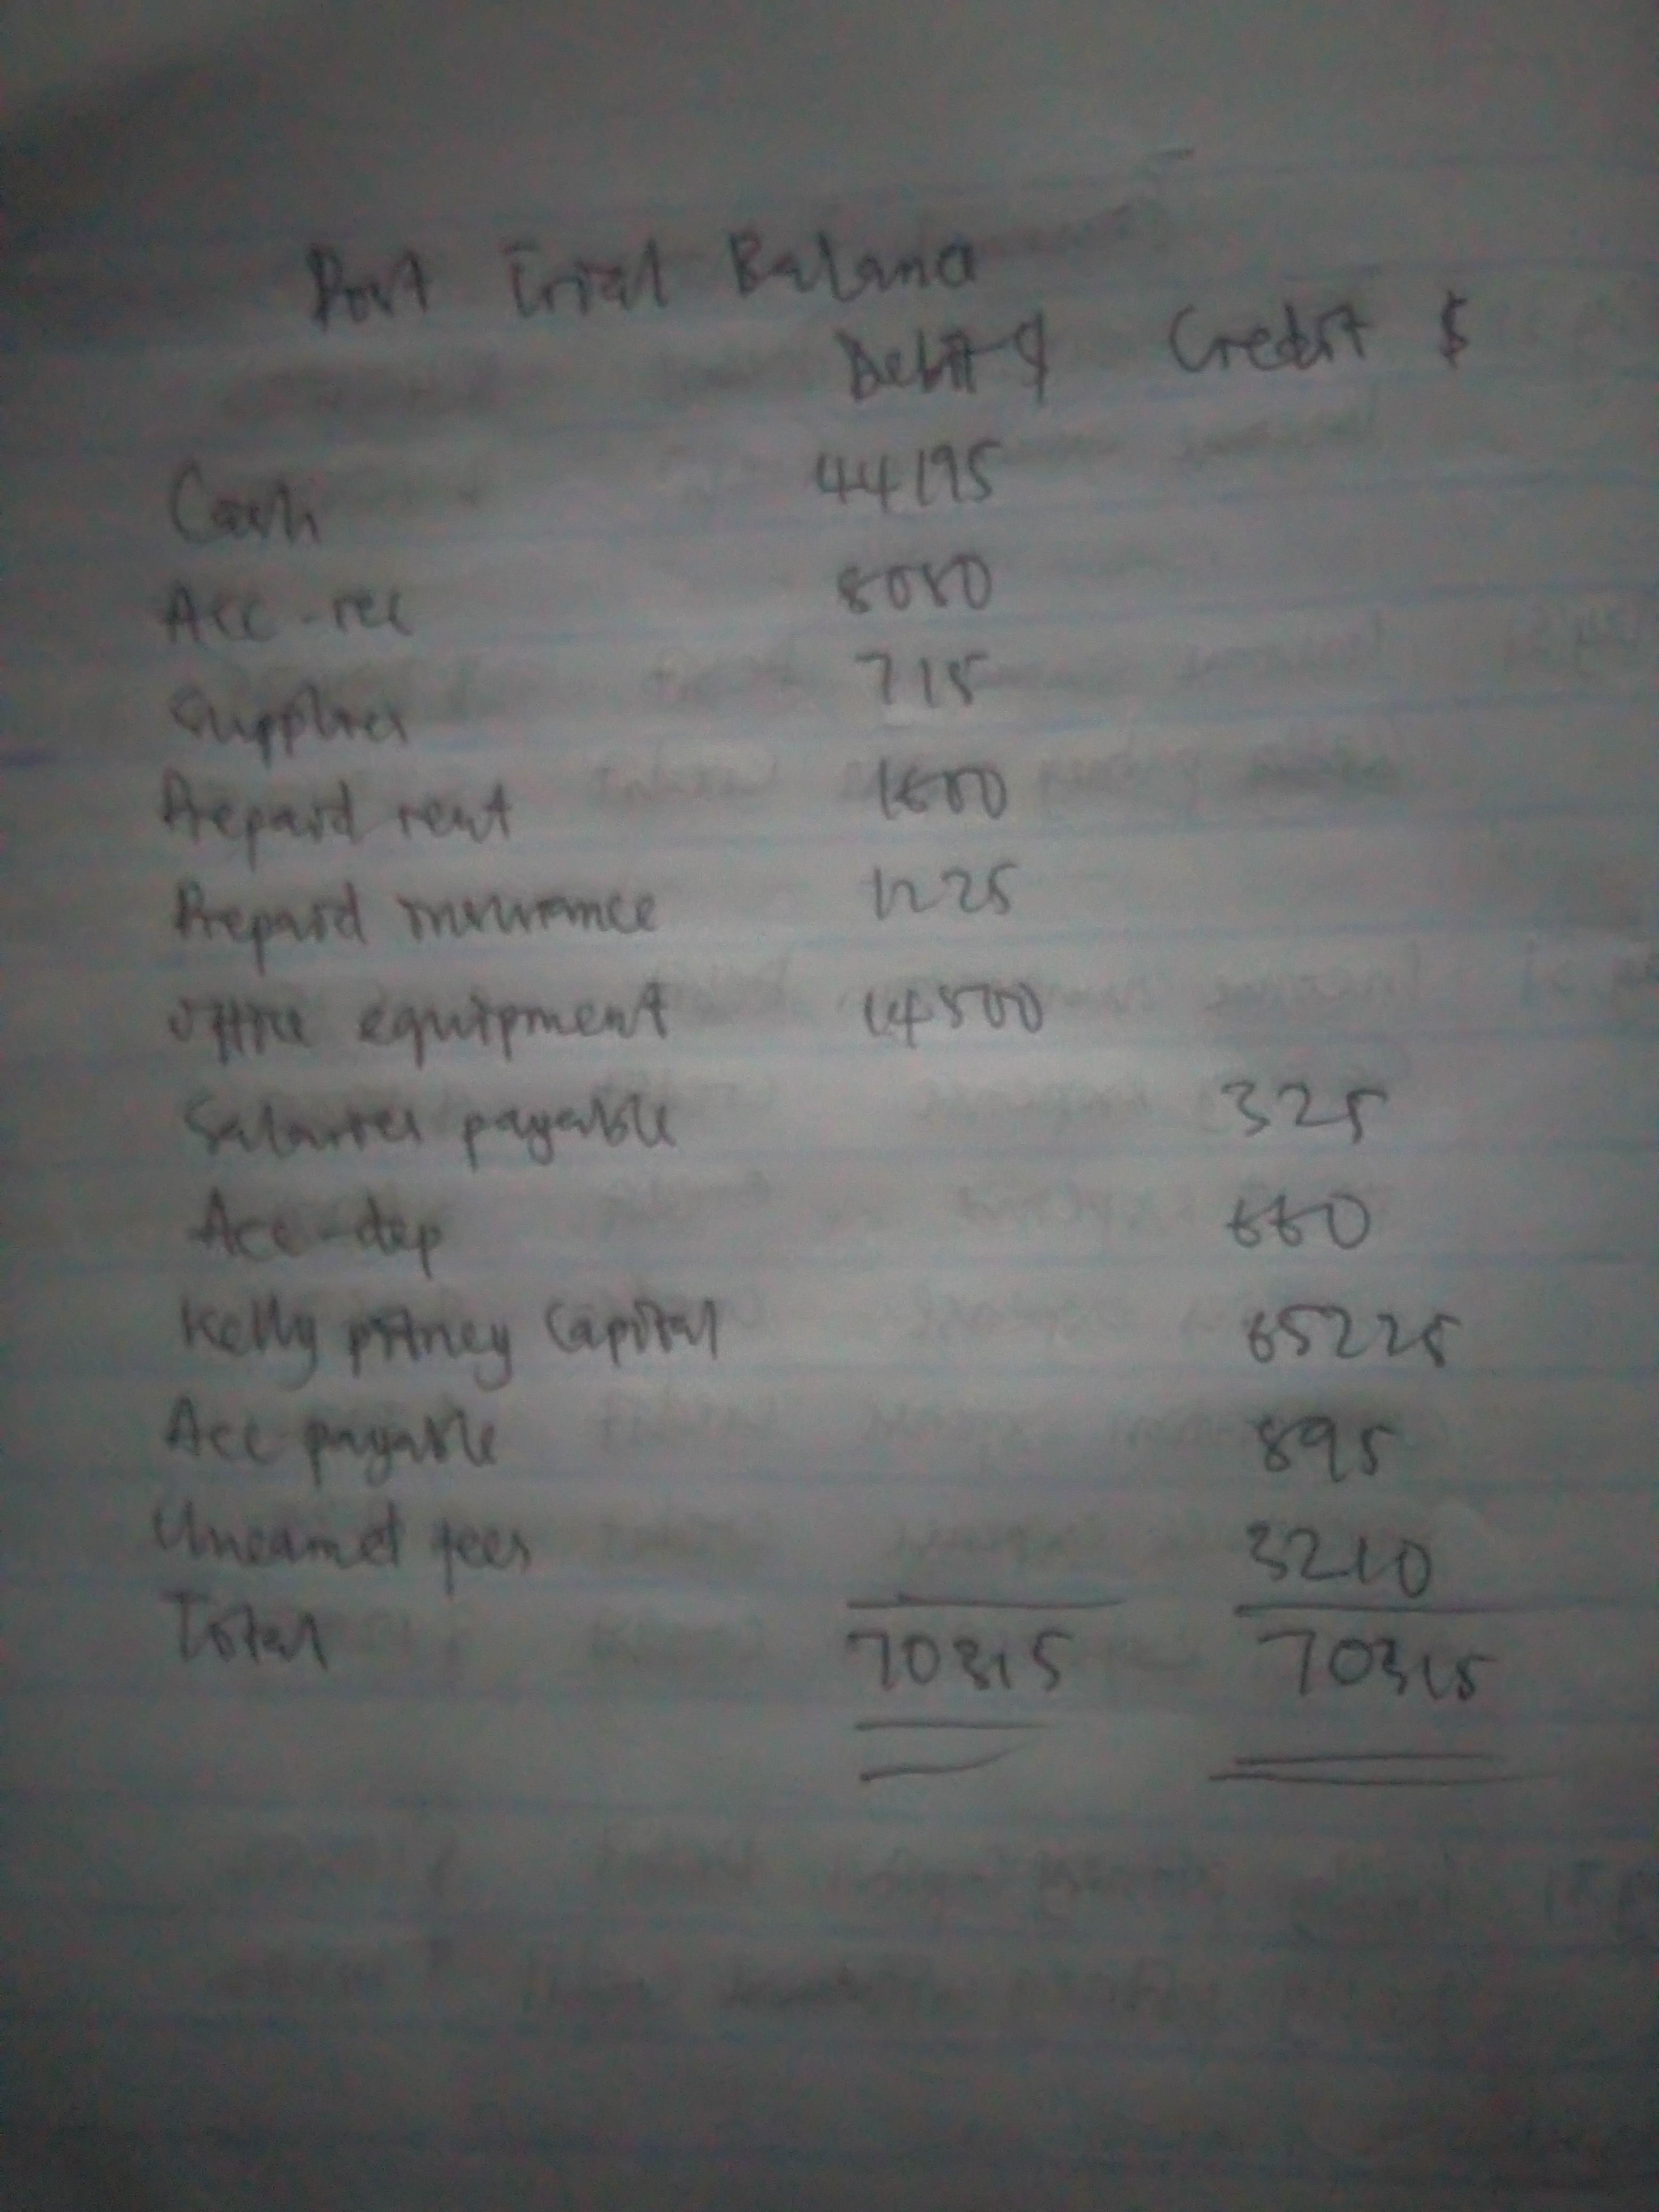 Post Trial Balance
Debit $ Credit $
Cash 44195
Acc-rec 8080
Supplies 715
Prepaid rent 1600
Prepaid insurance 1225
office equipment 14500
Salaries payable 325
Acc-dep 660
Kelly pitney Capital 65225
Acc payable 895
Unearned fees 3210
Total 70315 70315